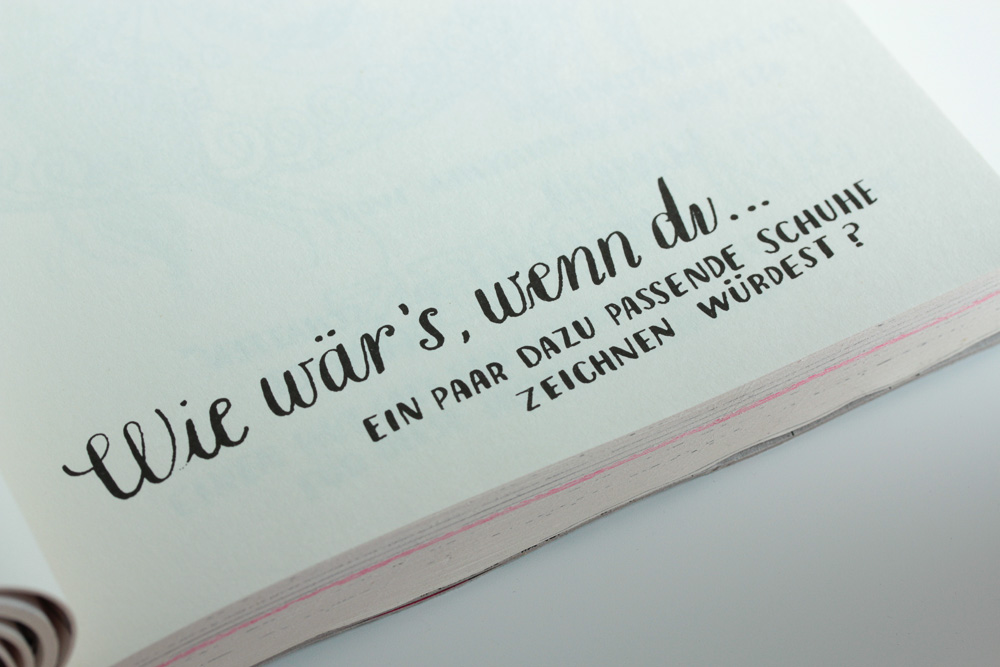 Wie wär's, wenn du...
EIN PAAR DAZU PASSENDE SCHUHE
ZEICHNEN WÜRDEST?